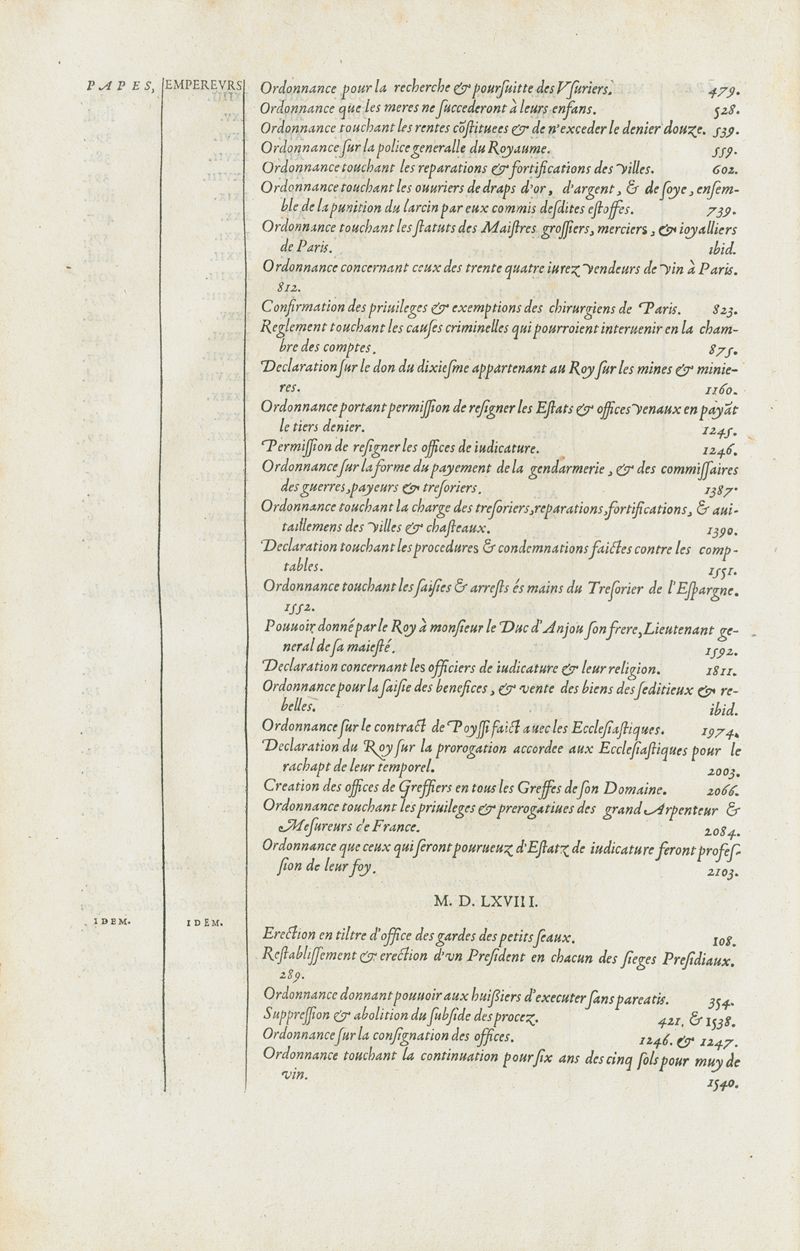 PAPES, EMPEREVRS
Ordonnance pour la recherche & pourſuitte des Vſuriers. 479.
Ordonnance que les meres ne ſuccederont à leurs enfans. 528.
Ordonnance touchant les rentes cõſtituees & de n'exceder le denier douze. 539.
Ordonnance ſur la police generalle du Royaume. 559.
Ordonnance touchant les reparations & fortifications des villes. 602.
Ordonnance touchant les ouuriers de draps d'or, d'argent, & de ſoye, enſem-
ble de la punition du larcin par eux commis deſdites eſtoffes. 739.
Ordonnance touchant les ſtatuts des Maiſtres groſſiers, merciers, & ioyalliers
de Paris. ibid.
Ordonnance concernant ceux des trente quatre iurez vendeurs de vin à Paris.
812.
Confirmation des priuileges & exemptions des chirurgiens de Paris. 823.
Reglement touchant les cauſes criminelles qui pourroient interuenir en la cham-
bre des comptes. 875.
Declaration ſur le don du dixieſme appartenant au Roy ſur les mines & minie-
res. 1160.
Ordonnance portant permiſſion de reſigner les Eſtats & offices venaux en payãt
le tiers denier. 1245.
Permiſſion de reſigner les offices de iudicature. 1246.
Ordonnance ſur la forme du payement de la gendarmerie, & des commiſſaires
des guerres, payeurs & treſoriers. 1387.
Ordonnance touchant la charge des treſoriers, reparations, fortifications, & aui-
taillemens des villes & chaſteaux. 1390.
Declaration touchant les procedures & condemnations faictes contre les comp-
tables. 1551.
Ordonnance touchant les ſaiſies & arreſts és mains du Treſorier de l'Eſpargne.
1552.
Pouuoir donné par le Roy à monſieur le Duc d'Anjou ſon frere, Lieutenant ge-
neral de ſa maieſté. 1592.
Declaration concernant les officiers de iudicature & leur religion. 1811.
Ordonnance pour la ſaiſie des benefices, & vente des biens des ſeditieux & re-
belles. ibid.
Ordonnance ſur le contract de Poyſſi faict auec les Eccleſiaſtiques. 1974.
Declaration du Roy ſur la prorogation accordee aux Eccleſiaſtiques pour le
rachapt de leur temporel. 2003.
Creation des offices de Greffiers en tous les Greffes de ſon Domaine. 2066.
Ordonnance touchant les priuileges & prerogatiues des grand Arpenteur &
Meſureurs de France. 2084.
Ordonnance que ceux qui ſeront pourueuz d'Eſtatz de iudicature feront profeſ-
ſion de leur foy. 2103.
M. D. LXVIII.
IDEM. IDEM.
Erection en tiltre d'office des gardes des petits ſeaux. 108.
Reſtabliſſement & erection d'vn Preſident en chacun des ſieges Preſidiaux.
289.
Ordonnance donnant pouuoir aux huiſsiers d'executer ſans pareatis. 354.
Suppreſſion & abolition du ſubſide des procez. 421, & 1538.
Ordonnance ſur la conſignation des offices. 1246. & 1247.
Ordonnance touchant la continuation pour ſix ans des cinq ſols pour muy de
vin. 1540.